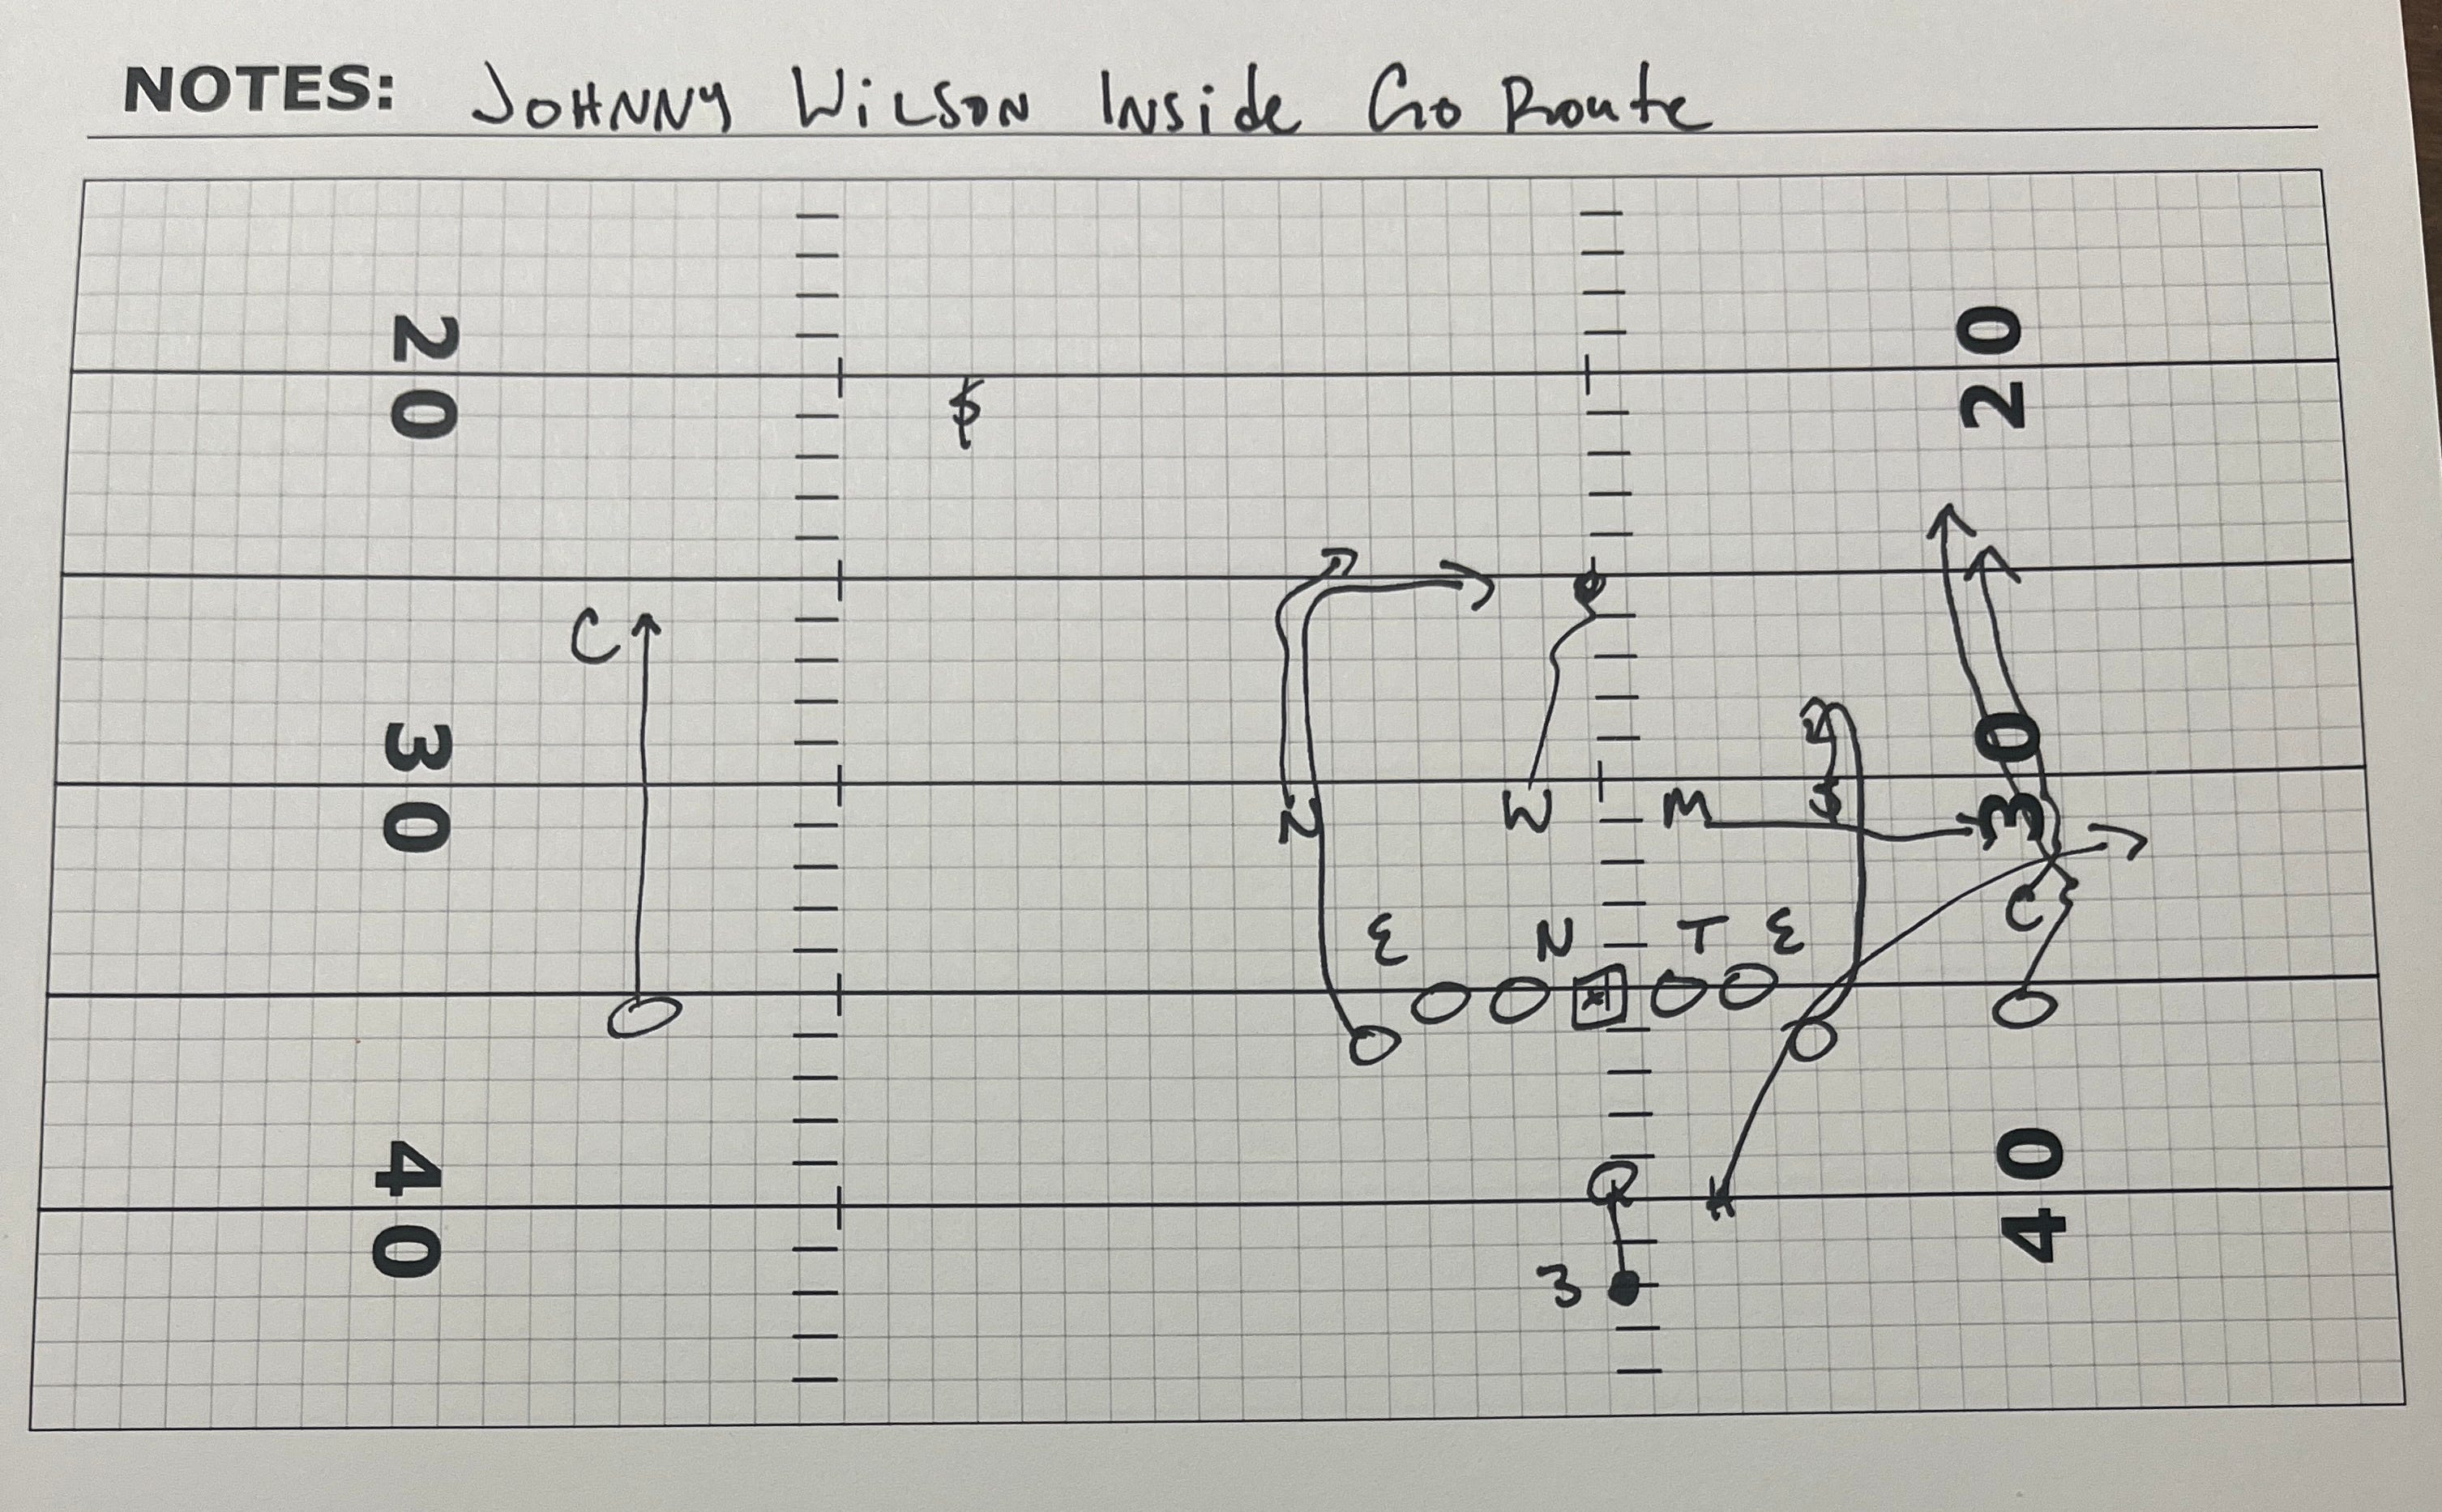 NOTES: JOHNNY WILSON INSIDE GO ROUTE
20 20
$
C
30 30
N W M $
C
E N T E
Q
40 40
3